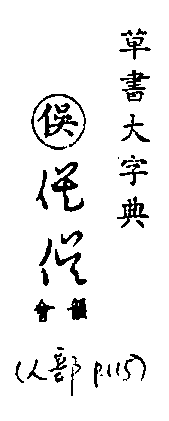 草書大字典
俁
俁 俁
韻會
(人部 P.115)